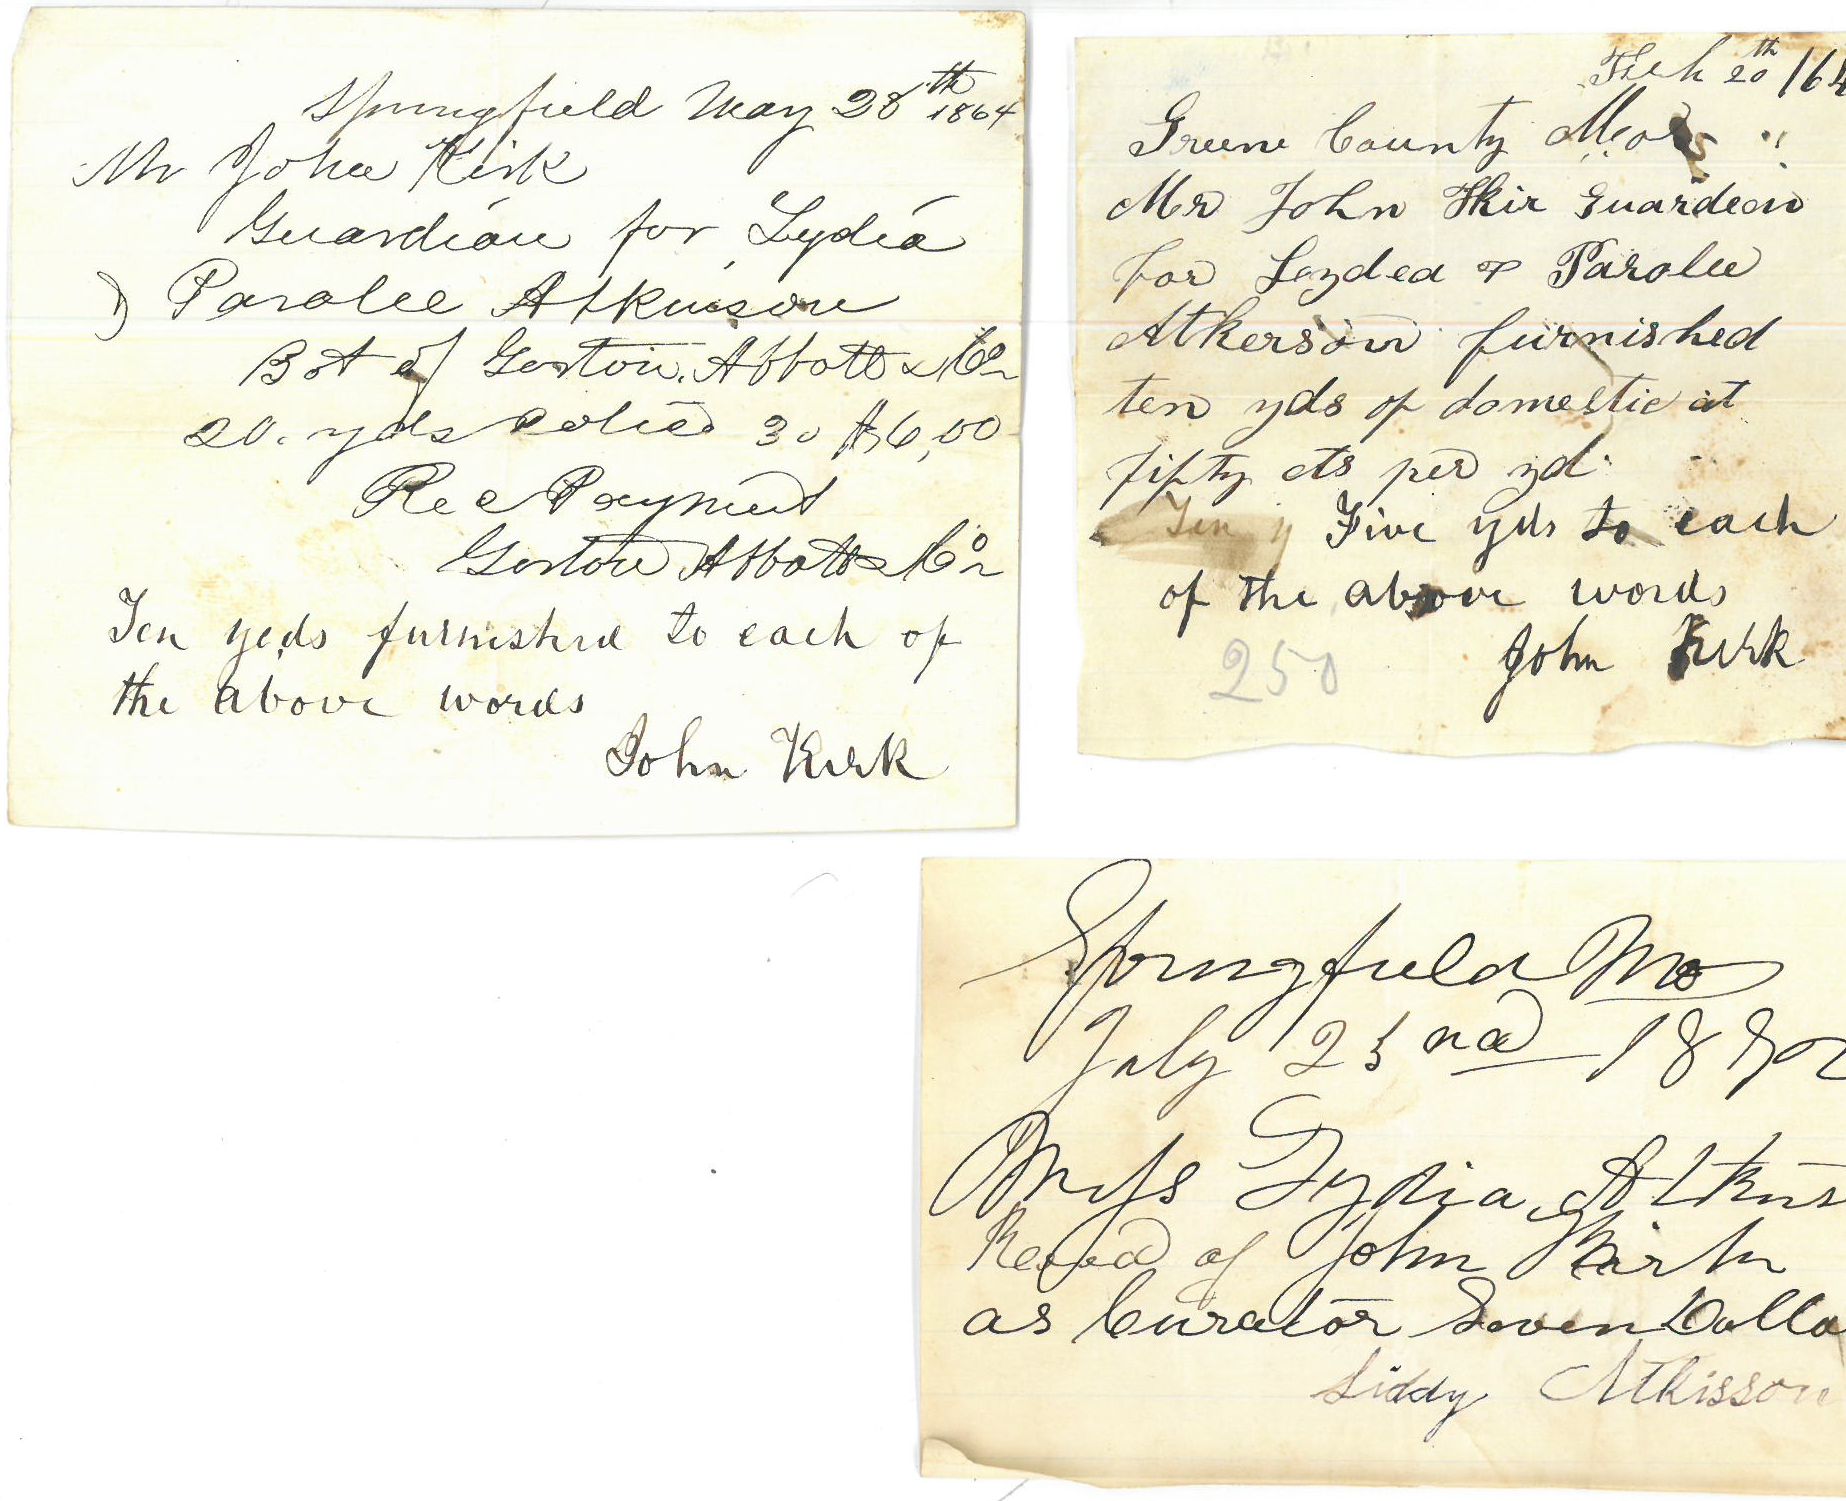 Springfield May 28th 1864
Mr John Kirk
Guardian for Lydia
& Paralee Atkinson
Bot of Abbott & Co
20 yds Calico 30 $6,00
Rec Payment
Abbott & Co
Ten yeds furnishd to each of
the above words
John Kirk
Feb 20th 164
Greene County Mo
Mr John Kir Guardeon
for Leydea & Paralee
Atkerson furnished
ten yds of domestic at
fifty cts per yd
Ten y Five yds to each
of the above words
John Kirk
250
Springfield Mo
July 23nd 1872
Miss Lydia Atkins
Recvd of John Kirk
as Curator Seven Dolla
Liddy Atkisson